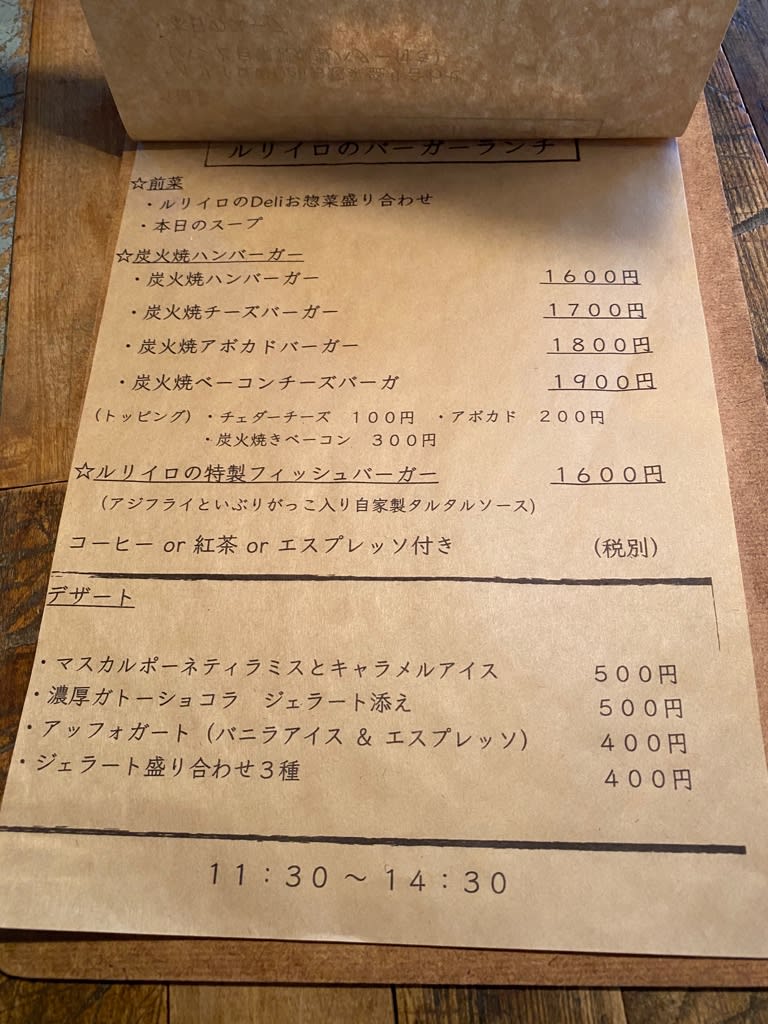 ルリイロのバーガーランチ
☆前菜
・ルリイロのDeliお惣菜盛り合わせ
・本日のスープ
☆炭火焼ハンバーガー
・炭火焼ハンバーガー　１６００円
・炭火焼チーズバーガー　１７００円
・炭火焼アボカドバーガー　１８００円
・炭火焼ベーコンチーズバーガ　１９００円
（トッピング）・チェダーチーズ　１００円　・アボカド　２００円
・炭火焼きベーコン　３００円
☆ルリイロの特製フィッシュバーガー　１６００円
（アジフライといぶりがっこ入り自家製タルタルソース）
コーヒー or 紅茶 or エスプレッソ付き　（税別）
デザート
・マスカルポーネティラミスとキャラメルアイス　５００円
・濃厚ガトーショコラ　ジェラート添え　５００円
・アッフォガート（バニラアイス ＆ エスプレッソ）　４００円
・ジェラート盛り合わせ３種　４００円
１１：３０～１４：３０